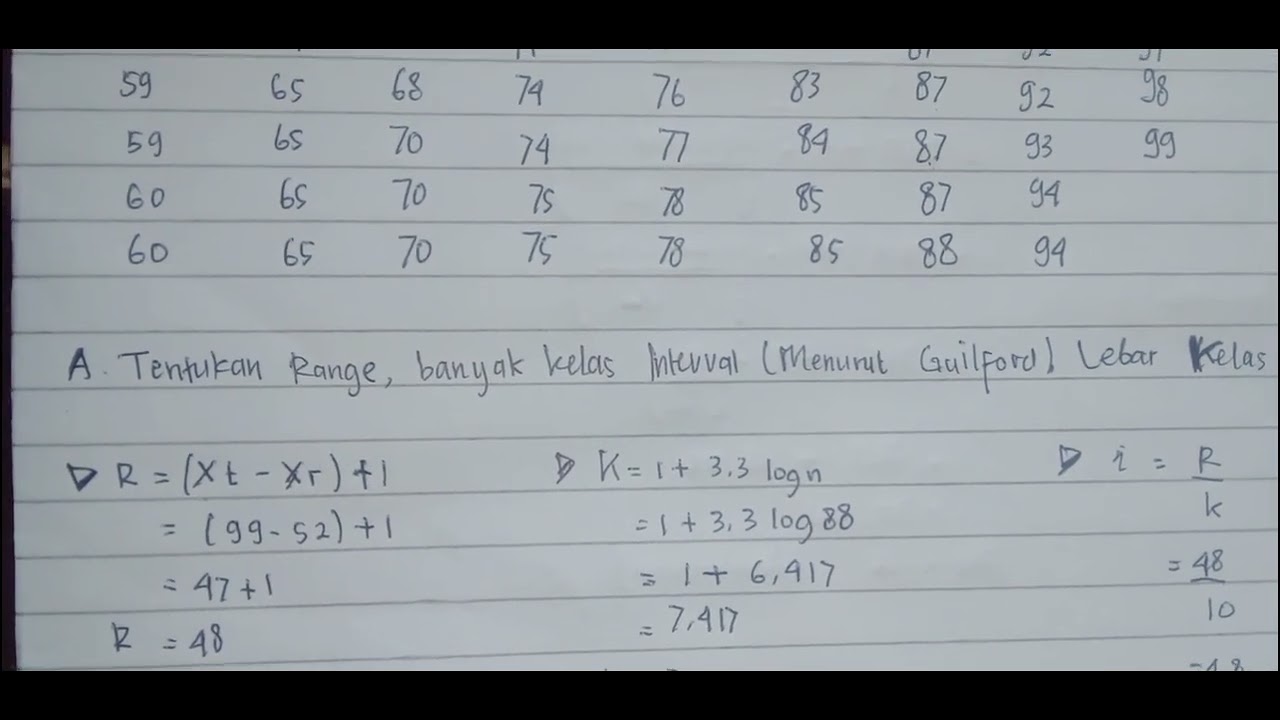 59 65 68 74 76 83 87 92 98
59 65 70 74 77 84 87 93 99
60 65 70 75 78 85 87 94
60 65 70 75 78 85 88 94
A. Tentukan Range, banyak kelas Interval (Menurut Guilford) Lebar Kelas
▷ R = (Xt - Xr) + 1
= (99 - 52) + 1
= 47 + 1
R = 48
▷ K = 1 + 3.3 log n
= 1 + 3,3 log 88
= 1 + 6,417
= 7,417
▷ i = R
k
= 48
10